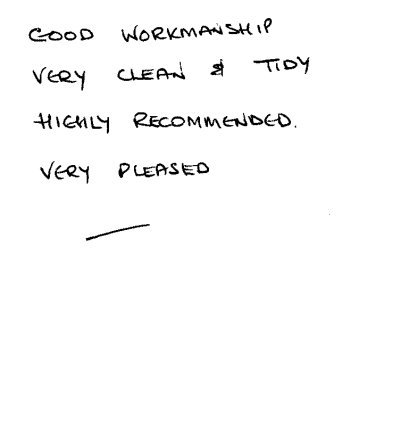 GOOD WORKMANSHIP
VERY CLEAN & TIDY
HIGHLY RECOMMENDED.
VERY PLEASED